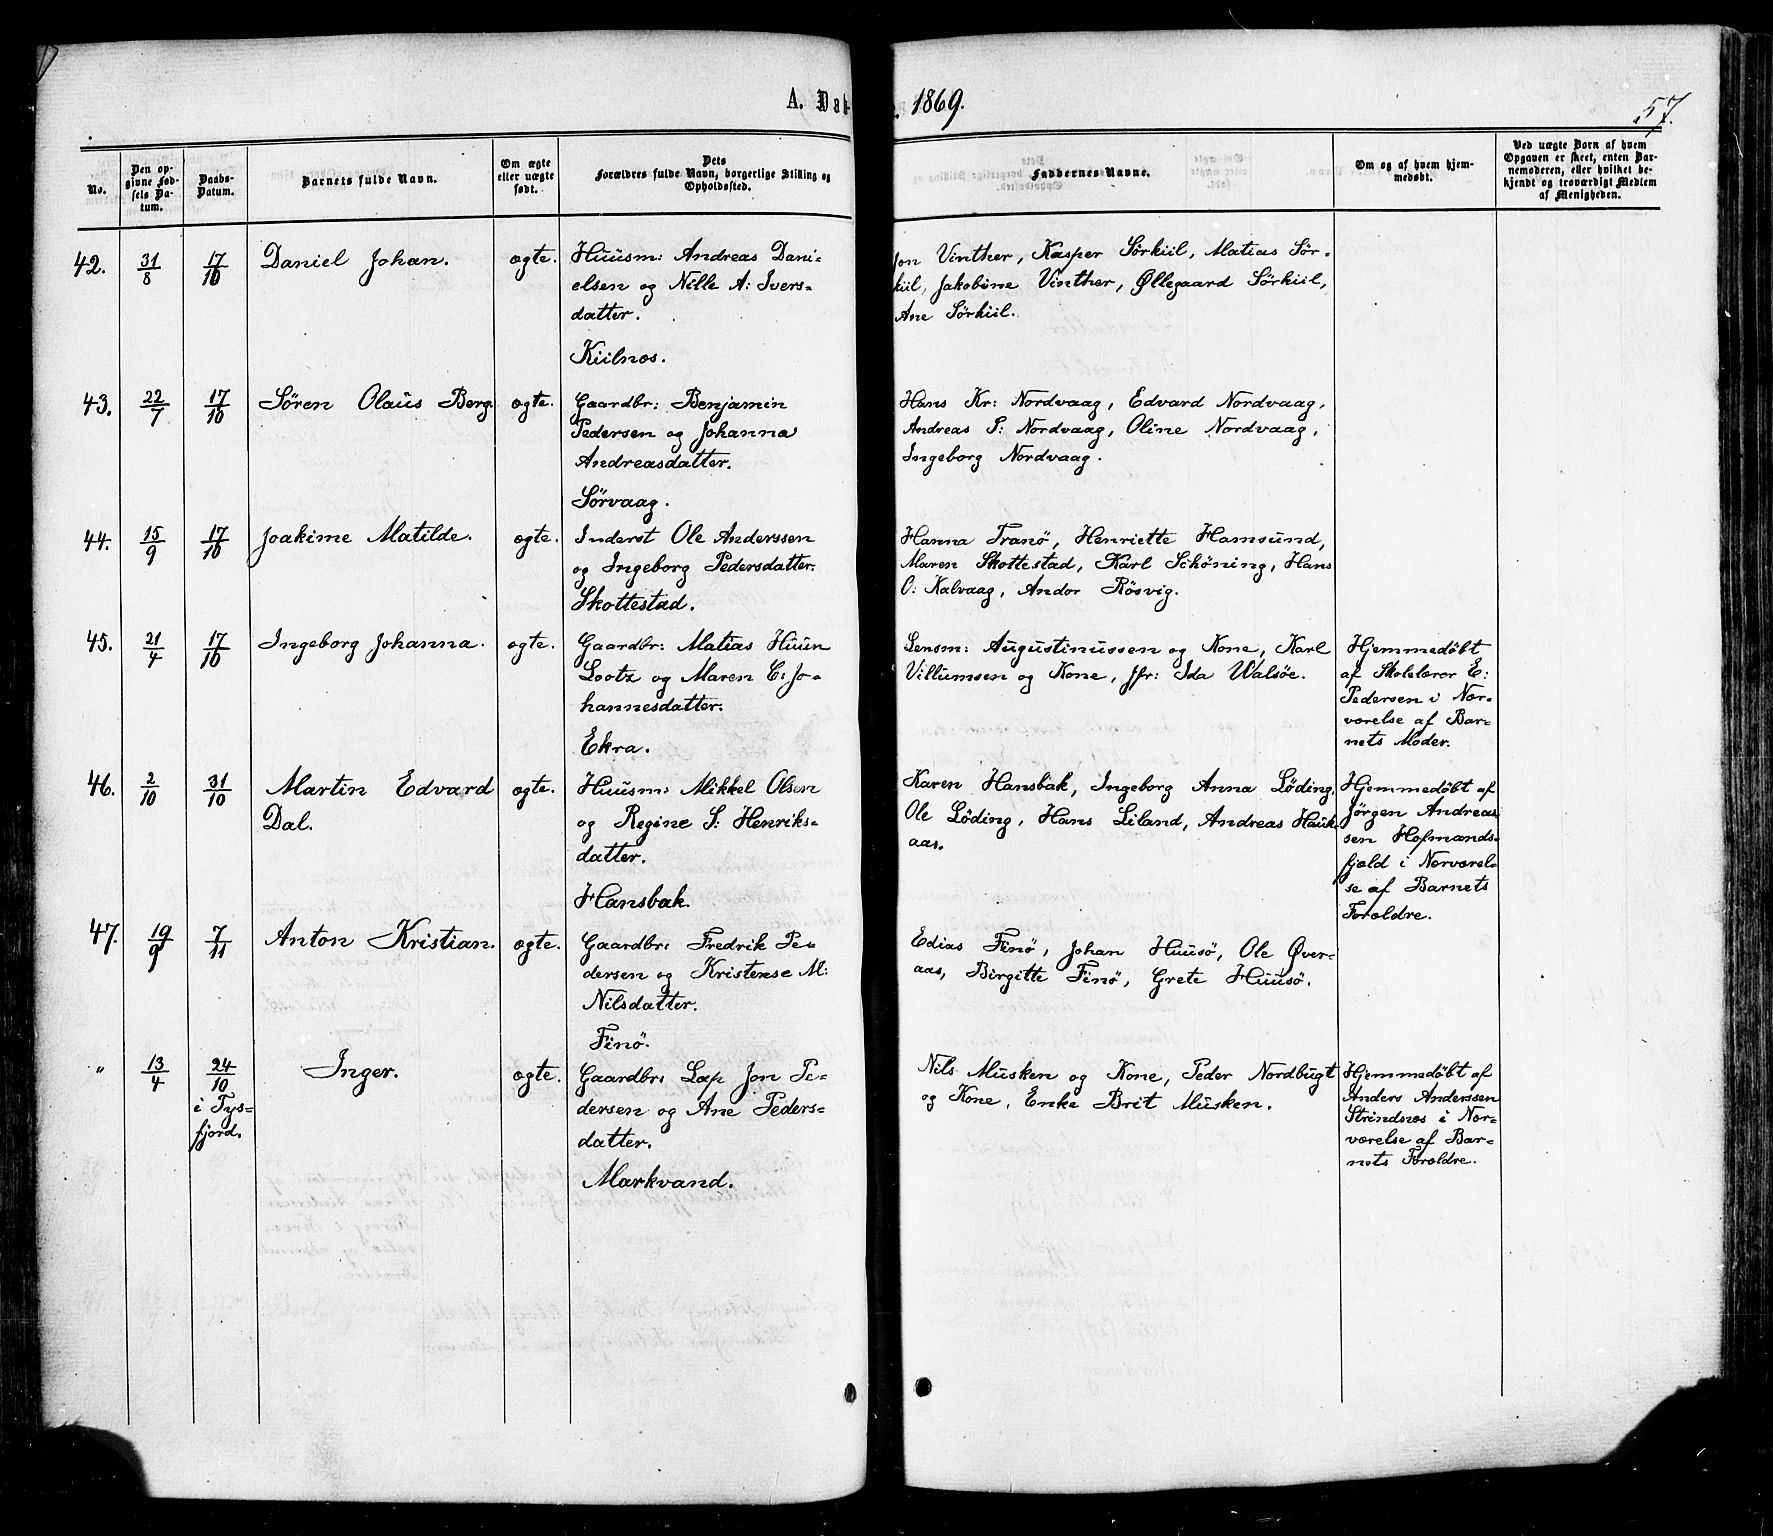 A. Dab
. 1869.
57.
No.
Den op-
givne Fød-
sels Da-
tum.
Daabs-
Datum.
Barnets fulde Navn.
Om ægte
eller uægte
født.
Dets
Forældres fulde Navn, borgerlige Stilling og
Opholdssted.
Faddernes Navne.
Om og af hvem hjem-
medøbt.
Ved uægte Børn af hvem
Opgaven er skeet, enten Bar-
nemoderen, eller hvilket be-
kjendt og troværdigt Medlem
af Menigheden.
42. 31/8 17/10 Daniel Johan. ægte. Huusm: Andreas Dani-
elsen og Nille A: Ivers-
datter.
Kiilnæs.
Jon Vinther, Kasper Sörkiil, Matias Sör-
kiil, Jakobine Vinther, Øllegaard Sörkiil,
Ane Sörkiil.
43. 22/7 17/10 Søren Olaus Berg. ægte. Gaardbr: Benjamin
Pedersen og Johanna
Andreasdatter.
Sörvaag.
Hans Kr: Nordvaag, Edvard Nordvaag,
Andreas P: Nordvaag, Oline Nordvaag,
Ingeborg Nordvaag.
44. 15/9 17/10 Joakime Matilde. ægte. Inderst Ole Anderssen
og Ingeborg Pedersdatter.
Skottestad.
Hanna Tranö, Henriette Hamsund,
Maren Skottestad, Karl Schöning, Hans
O: Kalvaag, Andor Rösvig.
45. 21/4 17/10 Ingeborg Johanna. ægte. Gaardbr: Matias Huun
Lootz og Maren C: Jo-
hannesdatter.
Ekra.
Lensm: Augustinussen og Kone, Karl
Villumsen og Kone, Jfr: Ida Walsöe.
Hjemmedøbt
af Skolelærer E:
Pedersen i Nær-
værelse af Bar-
nets Moder.
46. 2/10 31/10 Martin Edvard
Dal. ægte. Huusm: Mikkel Olsen
og Regine S: Henriks-
datter.
Hansbak.
Karen Hansbak, Ingeborg Anna Löding,
Ole Löding, Hans Liland, Andreas Hauk-
aas.
Hjemmedøbt af
Jørgen Andreas
sen Hofmands-
fjeld i Nærværel-
se af Barnets
Forældre.
47. 19/9 7/11 Anton Kristian. ægte. Gaardbr: Fredrik Pe-
dersen og Kristense M:
Nilsdatter.
Finö.
Edias Finö, Johan Huusö, Ole Øver-
aas, Birgitte Finö, Grete Huusö.
" 13/4 24/10
i Tys-
fjord.
Inger. ægte. Gaardbr: Lap Jon Pe-
dersen og Ane Peders-
datter.
Markvand.
Nils Musken og Kone, Peder Nordbugt
og Kone, Enke Brit Musken.
Hjemmedøbt af
Anders Anderssen
Strindnæs i Nær-
værelse af Bar-
nets Forældre.